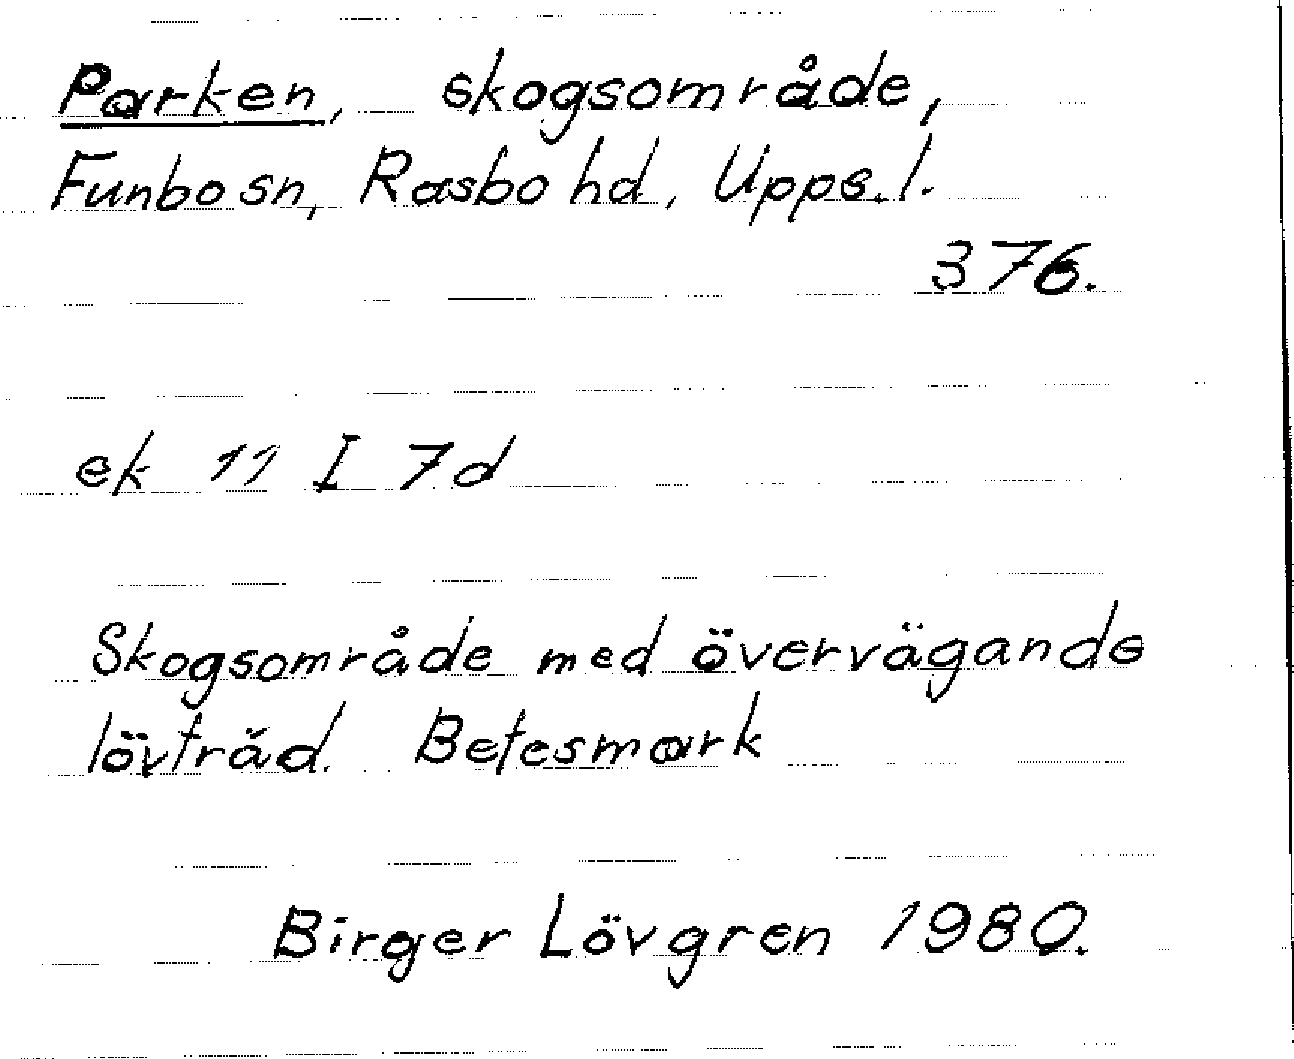 Parken, skogsområde,
Funbo sn, Rasbo hd, Upps. l.
376.
ek 11 I 7d
Skogsområde med övervägande
lövträd. Betesmark
Birger Lövgren 1980.